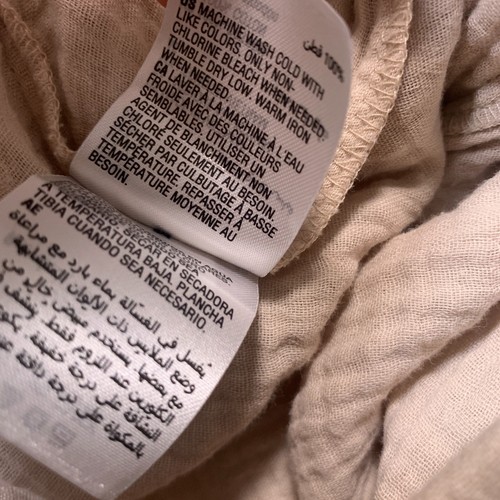 100% قطن
US MACHINE WASH COLD WITH
LIKE COLORS, ONLY NON-
CHLORINE BLEACH WHEN NEEDED
TUMBLE DRY LOW. WARM IRON
WHEN NEEDED.
CA LAVER À LA MACHINE À L'EAU
FROIDE AVEC DES COULEURS
SEMBLABLES, UTILISER UN
AGENT DE BLANCHIMENT NON
CHLORÉ SEULEMENT AU BESOIN.
SÉCHER PAR CULBUTAGE À BASSE
TEMPÉRATURE. REPASSER À
TEMPÉRATURE MOYENNE AU
BESOIN.
SECAR EN SECADORA
A TEMPERATURA BAJA, PLANCHA
TIBIA CUANDO SEA NECESARIO.
AE
يغسل في الغسالة بماء بارد مع مراعاة
وضع الملابس ذات الألوان المتشابهة
مع بعضها. يستخدم مبيض خال من
الكلورين عند اللزوم فقط. ينشف
النشافة على درجة خفيفة.
بالمكواة على درجة دافئة